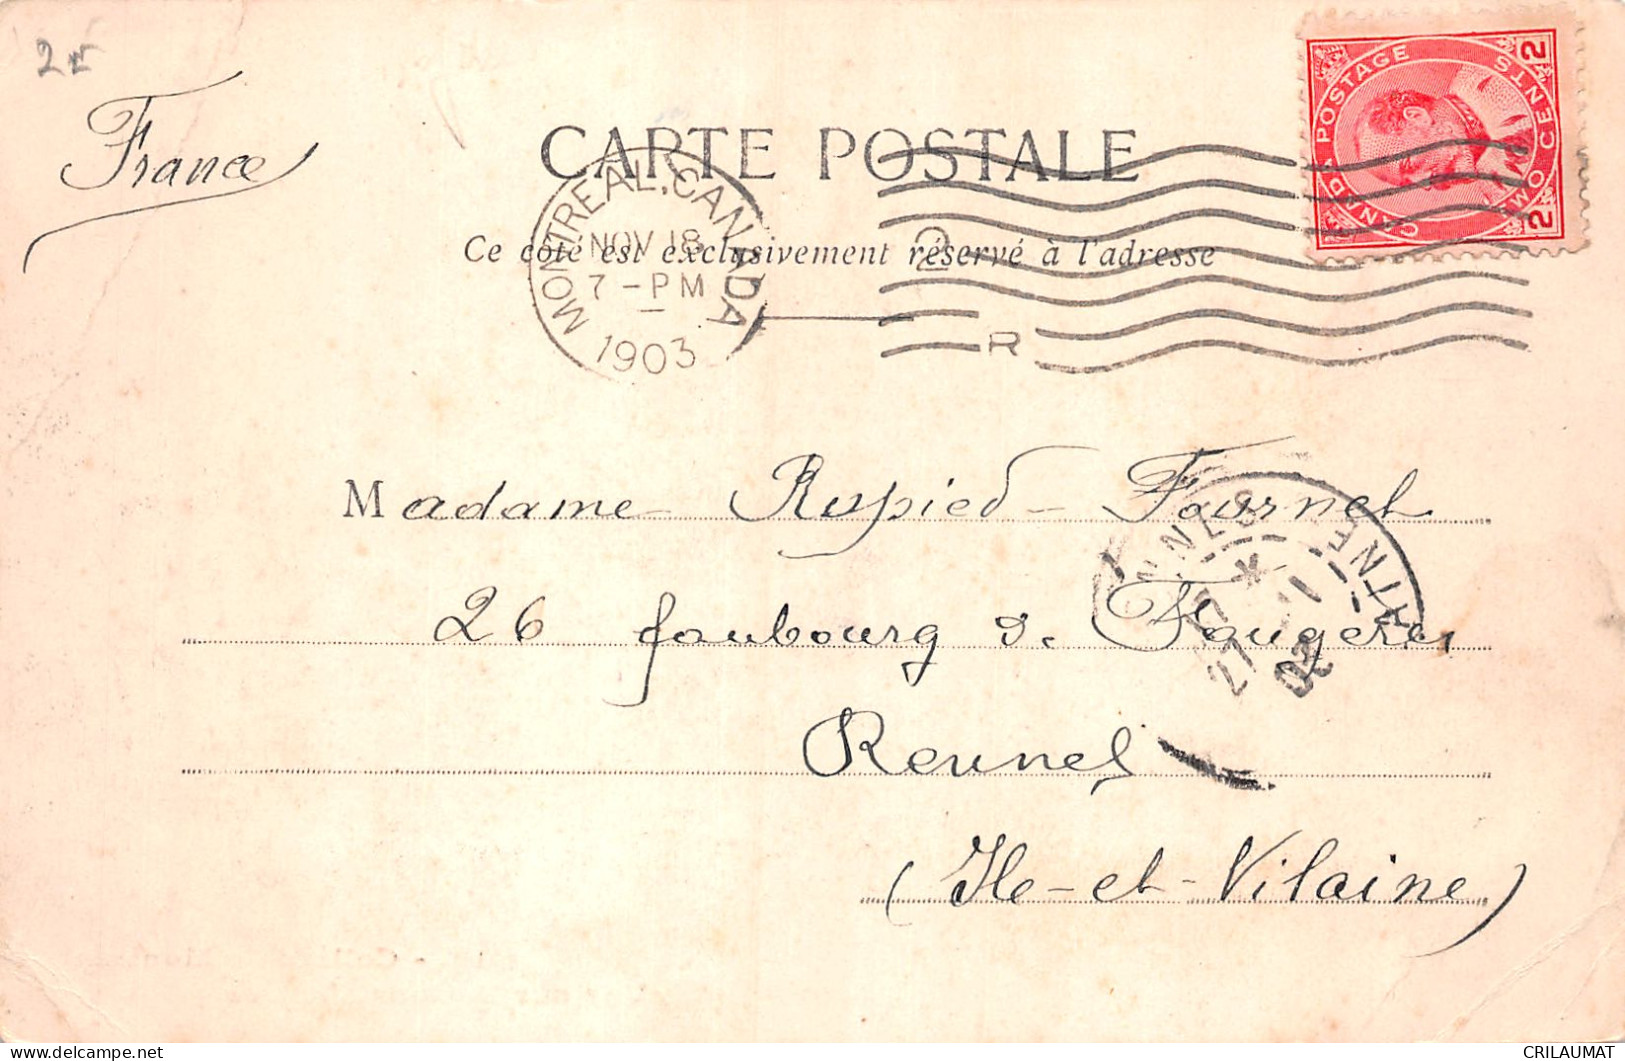 2€
France
CARTE POSTALE
Ce côté est exclusivement réservé à l'adresse
MONTREAL, CANADA
NOV 18
7 - PM
1903
2
R
CANADA POSTAGE
TWO CENTS
2 2
Madame Rupied-Fournel
26 faubourg de Fougères
Rennes
(Ile-et-Vilaine)
VILAINE
27 - 11
03
www.delcampe.net
CRILAUMAT